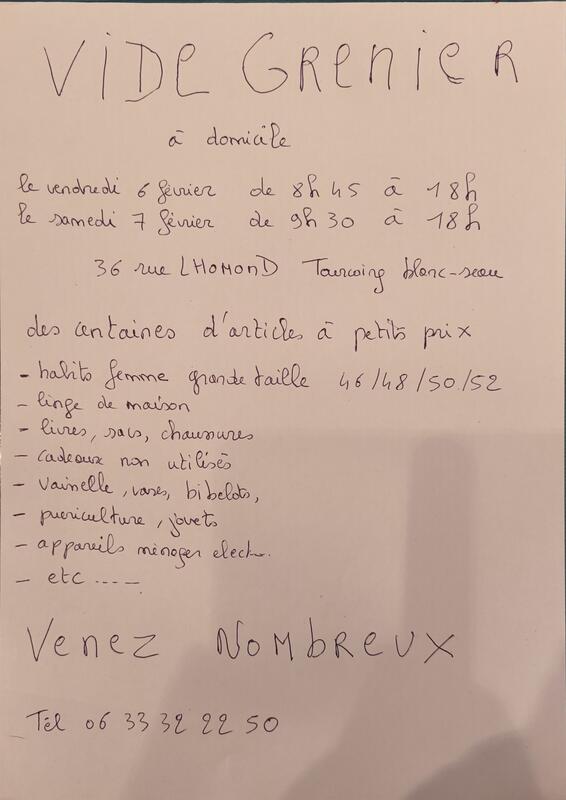 VIDE GRENIER
à domicile
le vendredi 6 février de 8h45 à 18h
le samedi 7 février de 9h30 à 18h
36 rue LHOMOND Tourcoing blanc-seau
des centaines d'articles à petits prix
- habits femme grande taille 46/48/50/52
- linge de maison
- livres, sacs, chaussures
- cadeaux non utilisés
- vaisselle, vases, bibelots,
- puericulture, jouets
- appareils ménager elect..
- etc .....
Venez Nombreux
Tél 06 33 32 22 50